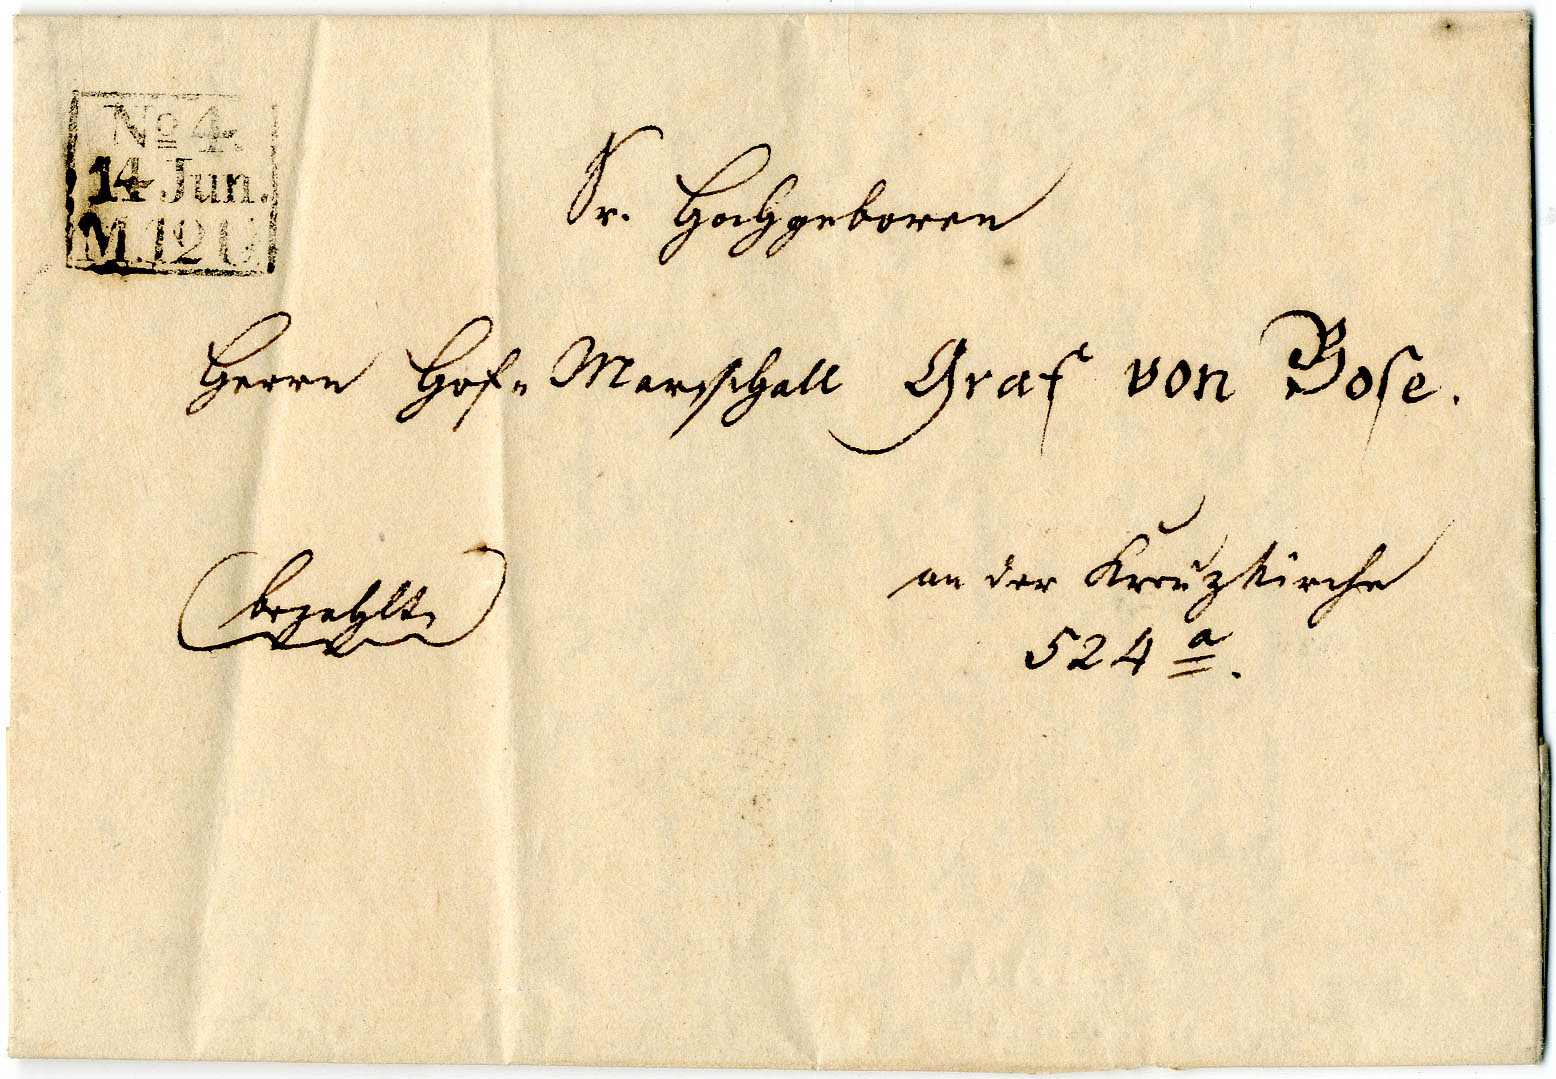 No 4.
14 Jun.
M.12 U
Sr. Hochgeboren
Herrn Hof-Marschall Graf von Bose.
bezahlt.
an der Kreuzkirche
524 a.